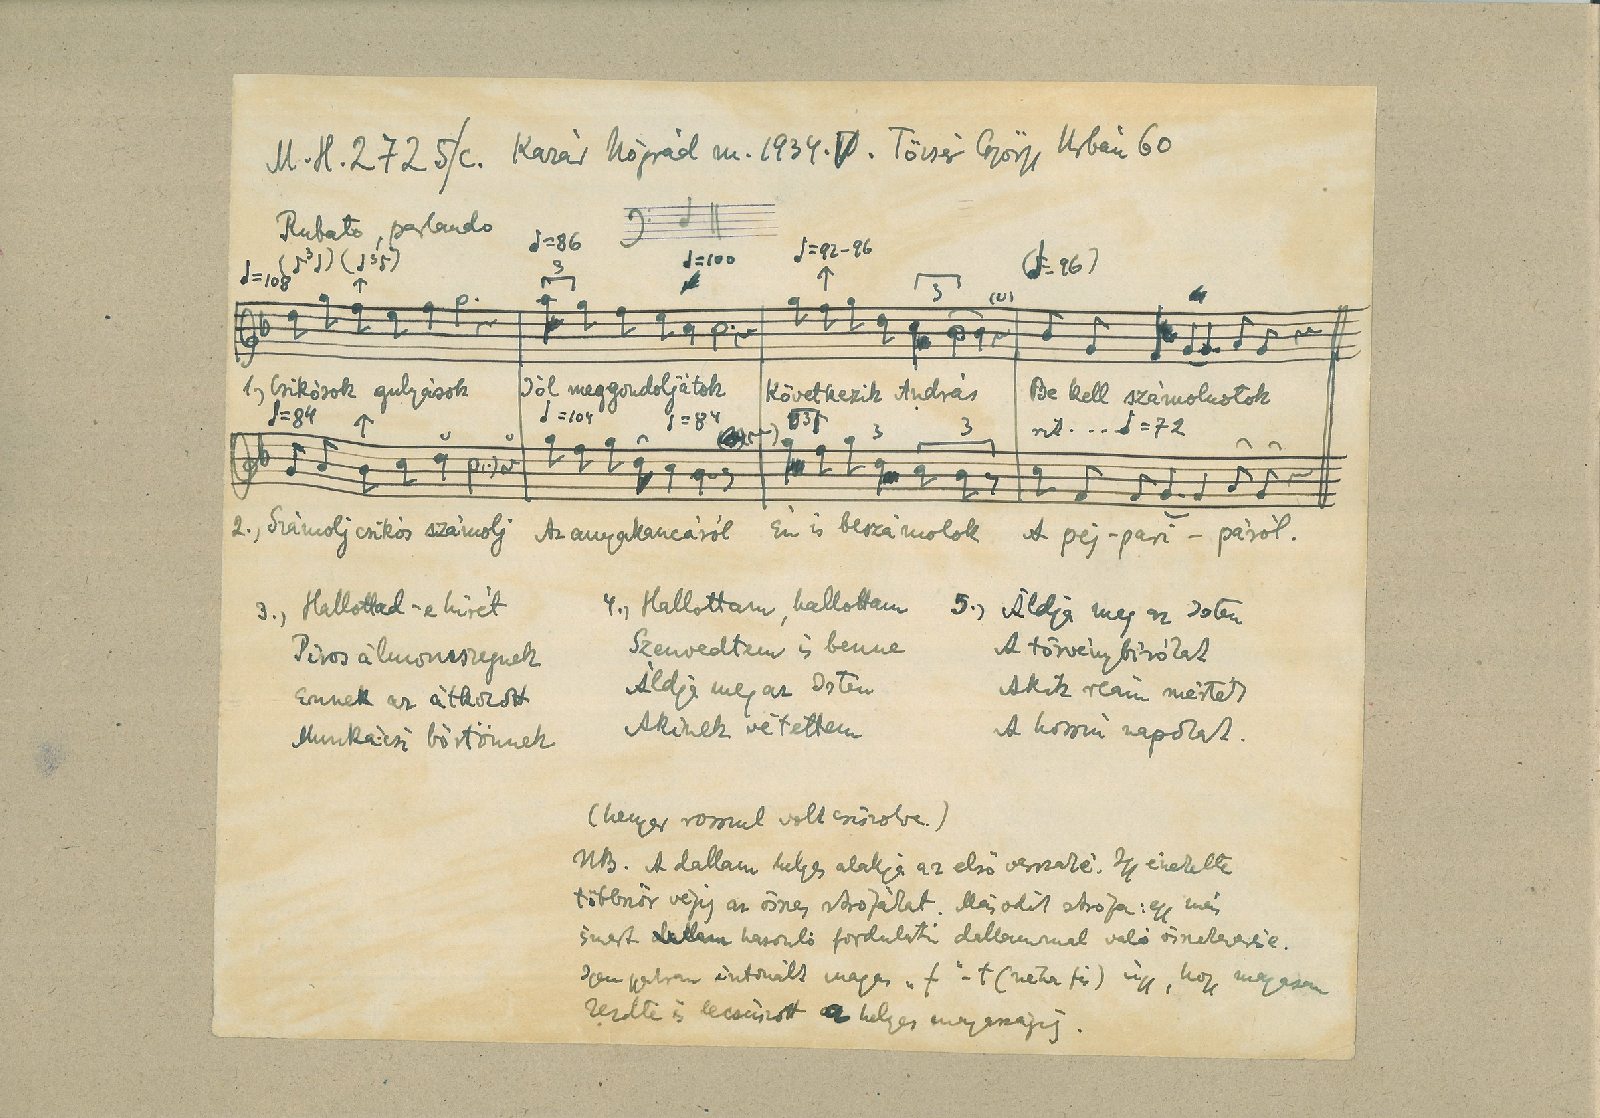 M.H. 2725/c. Kazár Nógrád m. 1934. V. Tőzsér György Urbán 60
Rubato, parlando
♩=108 ♩=86 ♩=100 ♩=92-96 (♩=96)
1., Csikósok gulyások Jól meggondoljátok Következik András Be kell számolnotok
♩=84 ♩=104 ♩=84 rit.... ♩=72
2., Számolj csikós számolj Az anyakancáról Én is beszámolok A pej-pari-páról.
3., Hallottad-e hirét
Piros álmoskegnek
Ennek az átkozott
Munkácsi börtönnek
4., Hallottam, hallottam
Szenvedtem is benne
Áldja meg az Isten
Akinek vétettem
5., Áldja meg az Isten
A törvénybirákat
Akik reám mérték
A hosszú napokat.
(henger rosszul volt csiszolva.)
NB. A dallam helyes alakja az első versszaké. Így énekelte
többször végig az összes strófákat. Második strófa: egy más
ismert dallam hasonló fordulatú dallammal való összekeverése.
Igen gyakran intonált magas „f"-t (néha fis) úgy, hogy magasan
kezdte és lecsúszott a helyes magasságig.